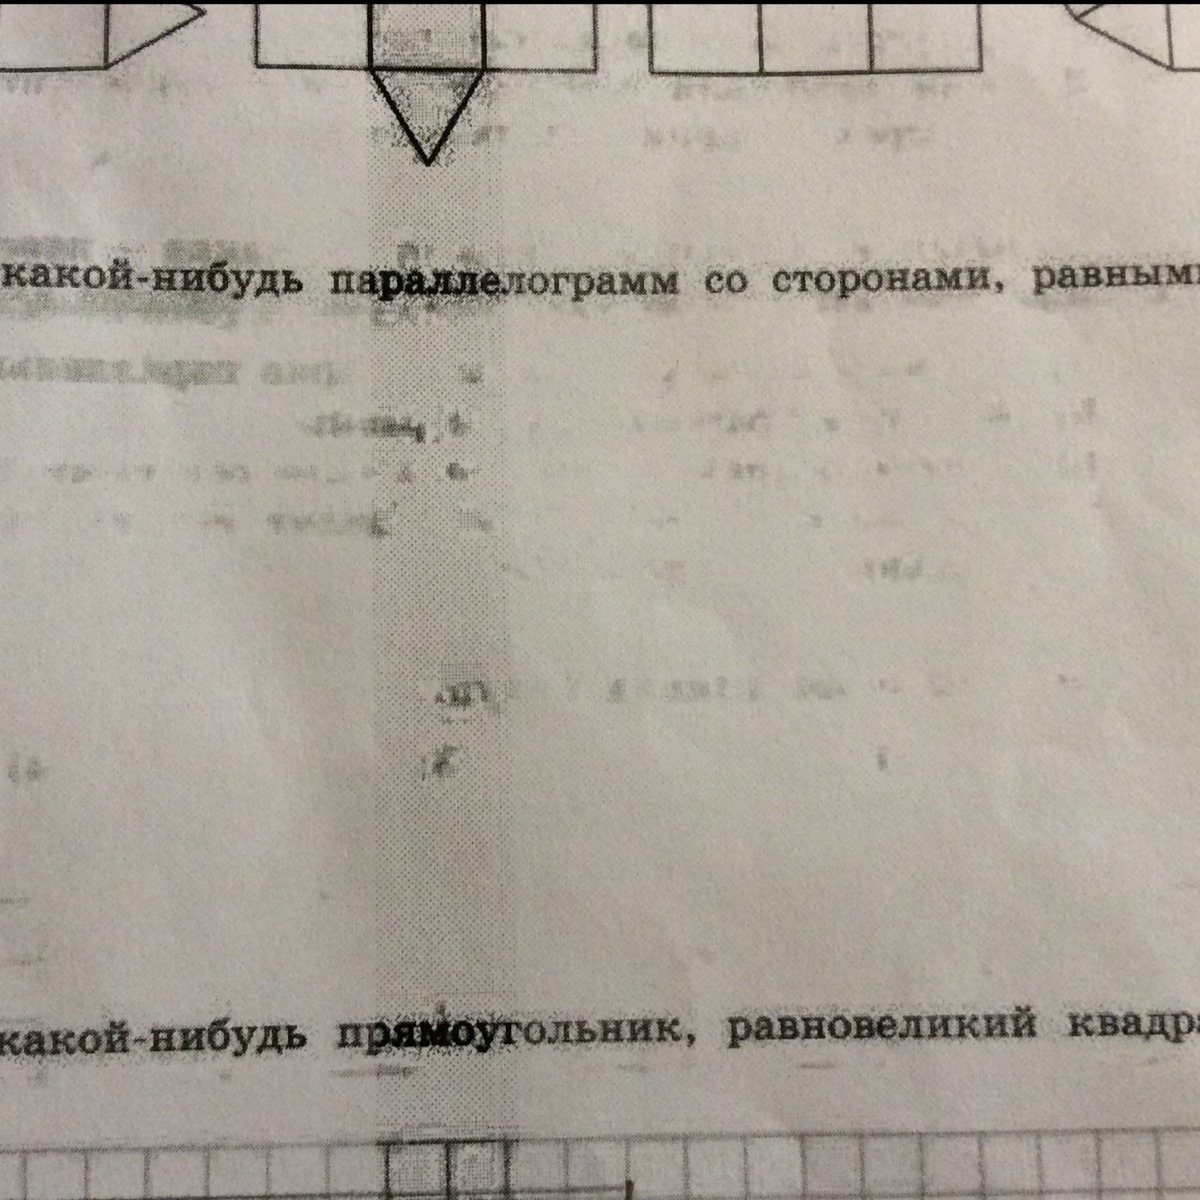 какой-нибудь параллелограмм со сторонами, равными
какой-нибудь прямоугольник, равновеликий квадра